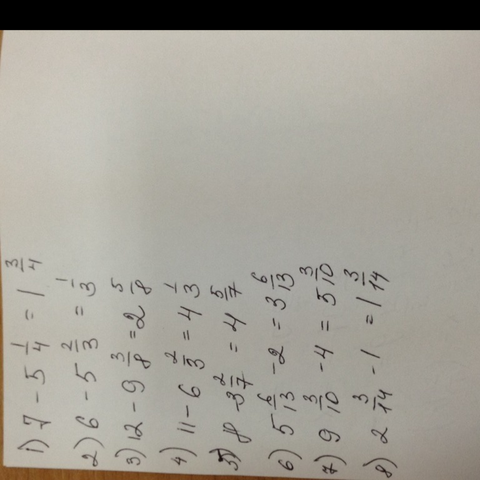 1) 7 - 5 1/4 = 1 3/4
2) 6 - 5 2/3 = 1/3
3) 12 - 9 3/8 = 2 5/8
4) 11 - 6 2/3 = 4 1/3
5) 8 - 3 2/7 = 4 5/7
6) 5 6/13 - 2 = 3 6/13
7) 9 3/10 - 4 = 5 3/10
8) 2 3/14 - 1 = 1 3/14